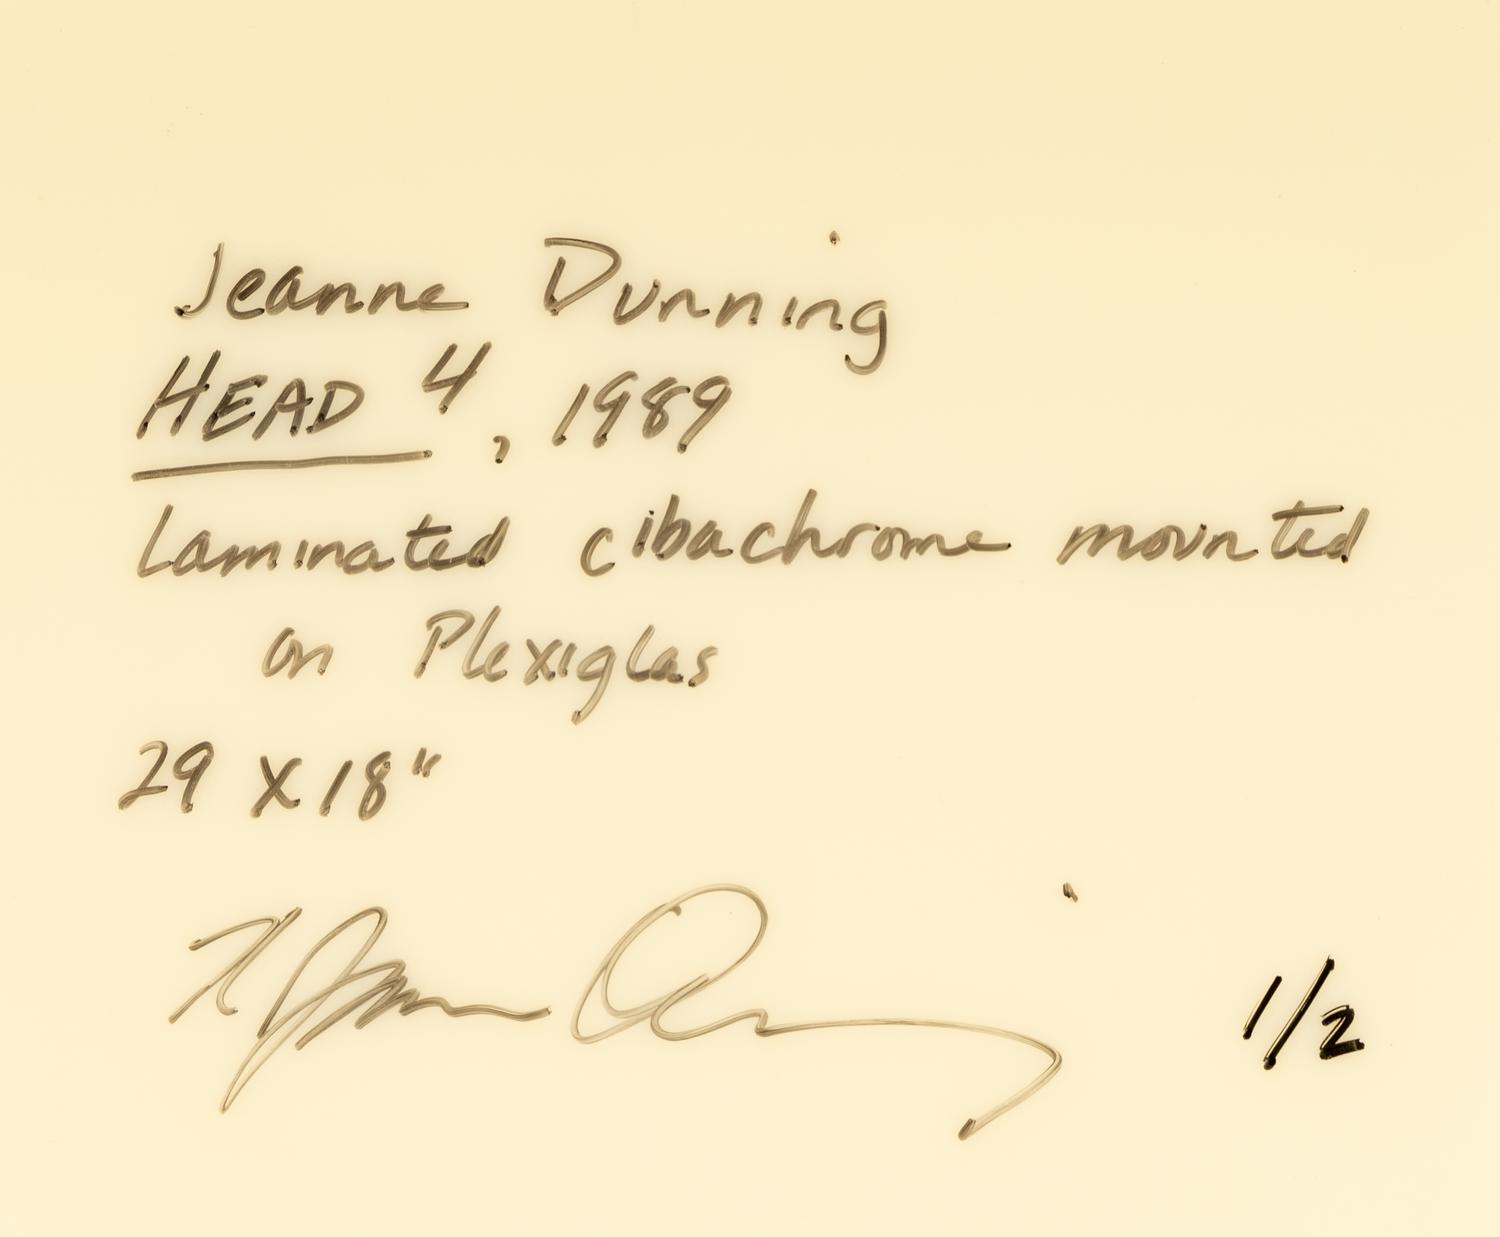 Jeanne Dunning
HEAD 4, 1989
Laminated cibachrome mounted
on Plexiglas
29 X 18"
1/2